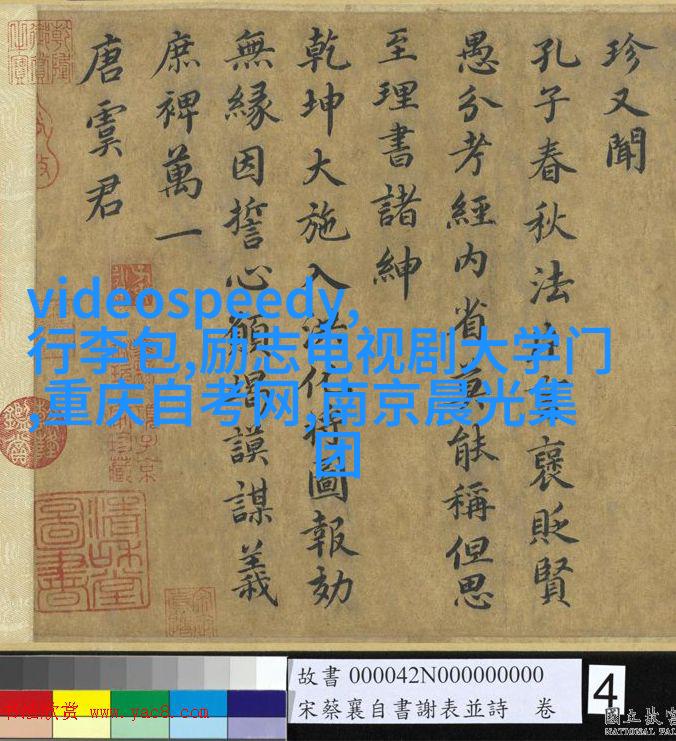 珍又聞
孔子春秋法 褒貶賢
愚分考經內省莫能稱但思
至理書諸紳
乾坤大施入洪化將圖報効
無緣因誓心願竭謨謀義
庶裨萬一
唐虞君
videospeedy,
行李包,励志电视剧大学门
,重庆自考网,南京晨光集
团
故書 000042N000000000
宋蔡襄自書謝表並詩 卷
4
书法欣赏 www.yac8.com
國立故宮
NATIONAL PAL